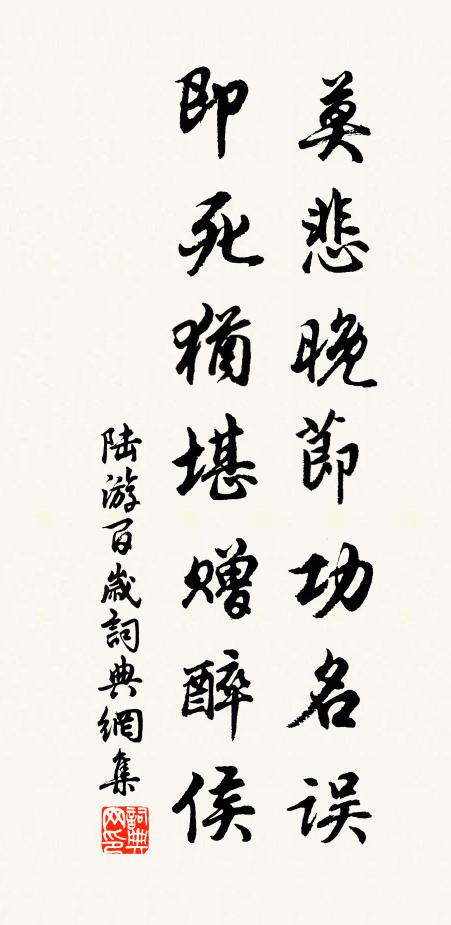 莫悲晚节功名误
即死猶堪赠醉侯
陆游百歲詞典網集
詞典网印